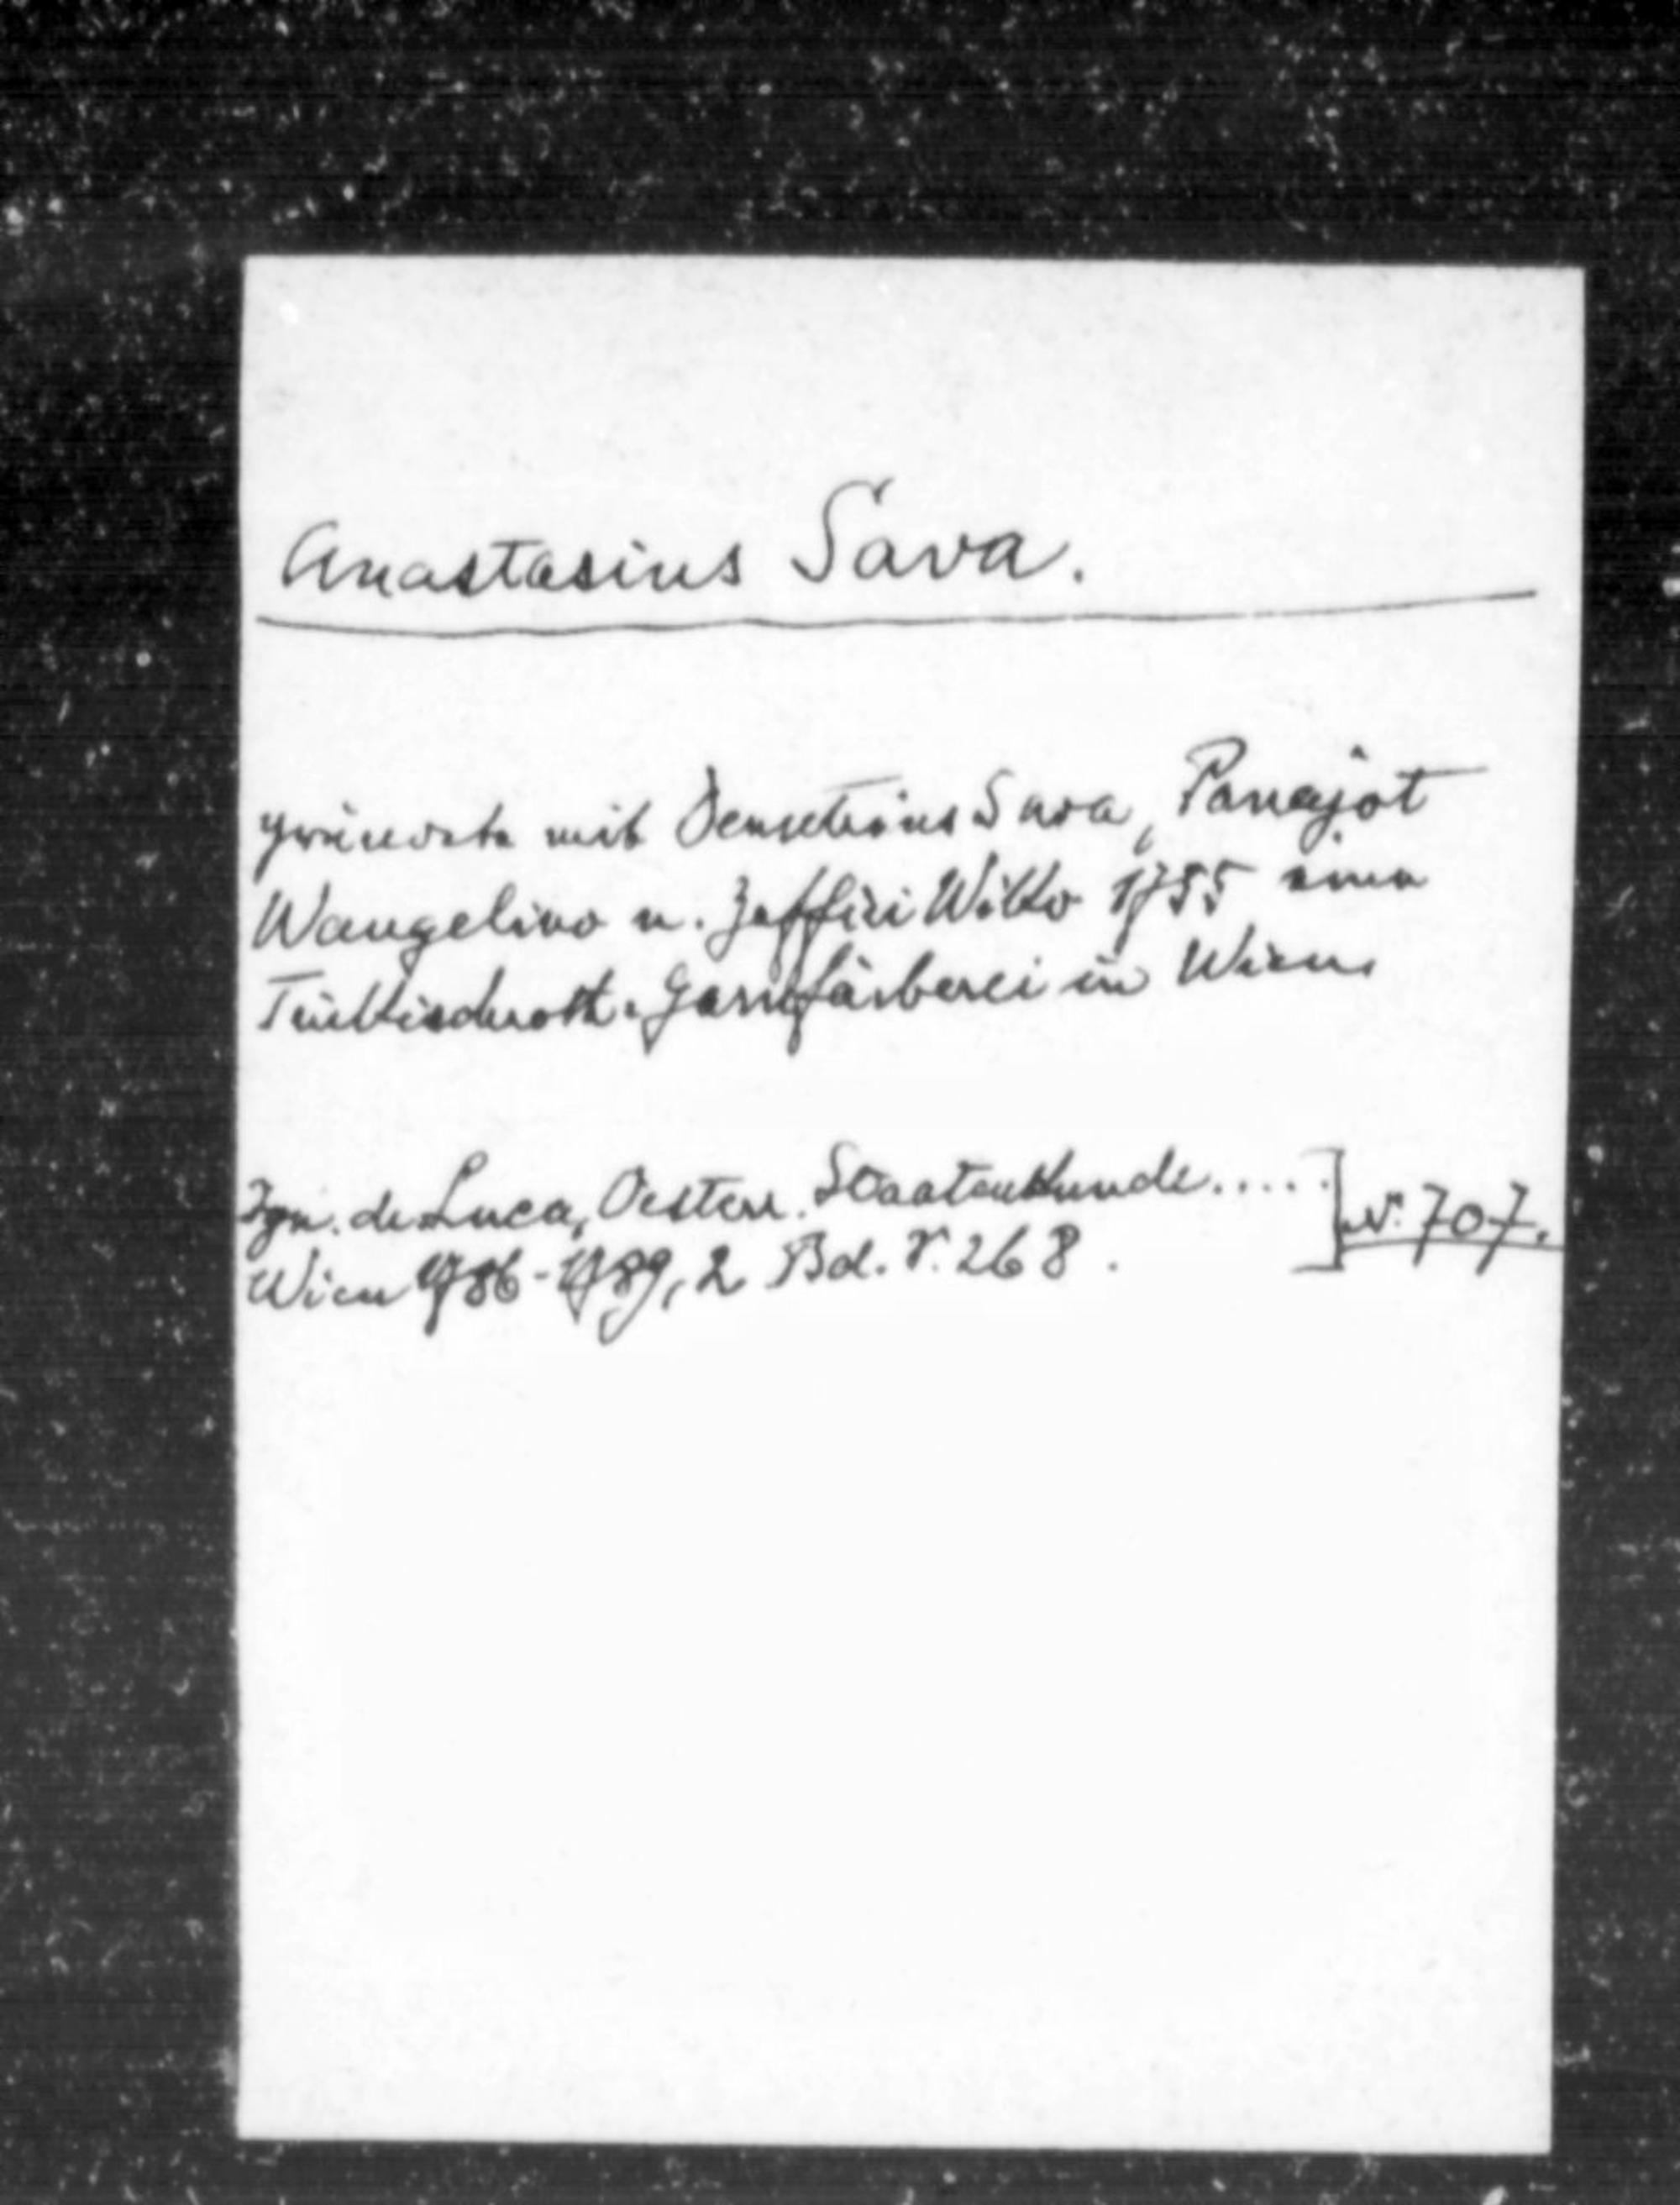 Anastasius Sava.
gründete mit Demetrius Sava, Panajot
Wangelino u. Zeffiri Witto 1755 eine
Türkischroth-Garnfärberei in Wien
Ign. de Luca, Oesterr. Staatenkunde.....
Wien 1786-1789, 2 Bd. S. 268.
N. 707.